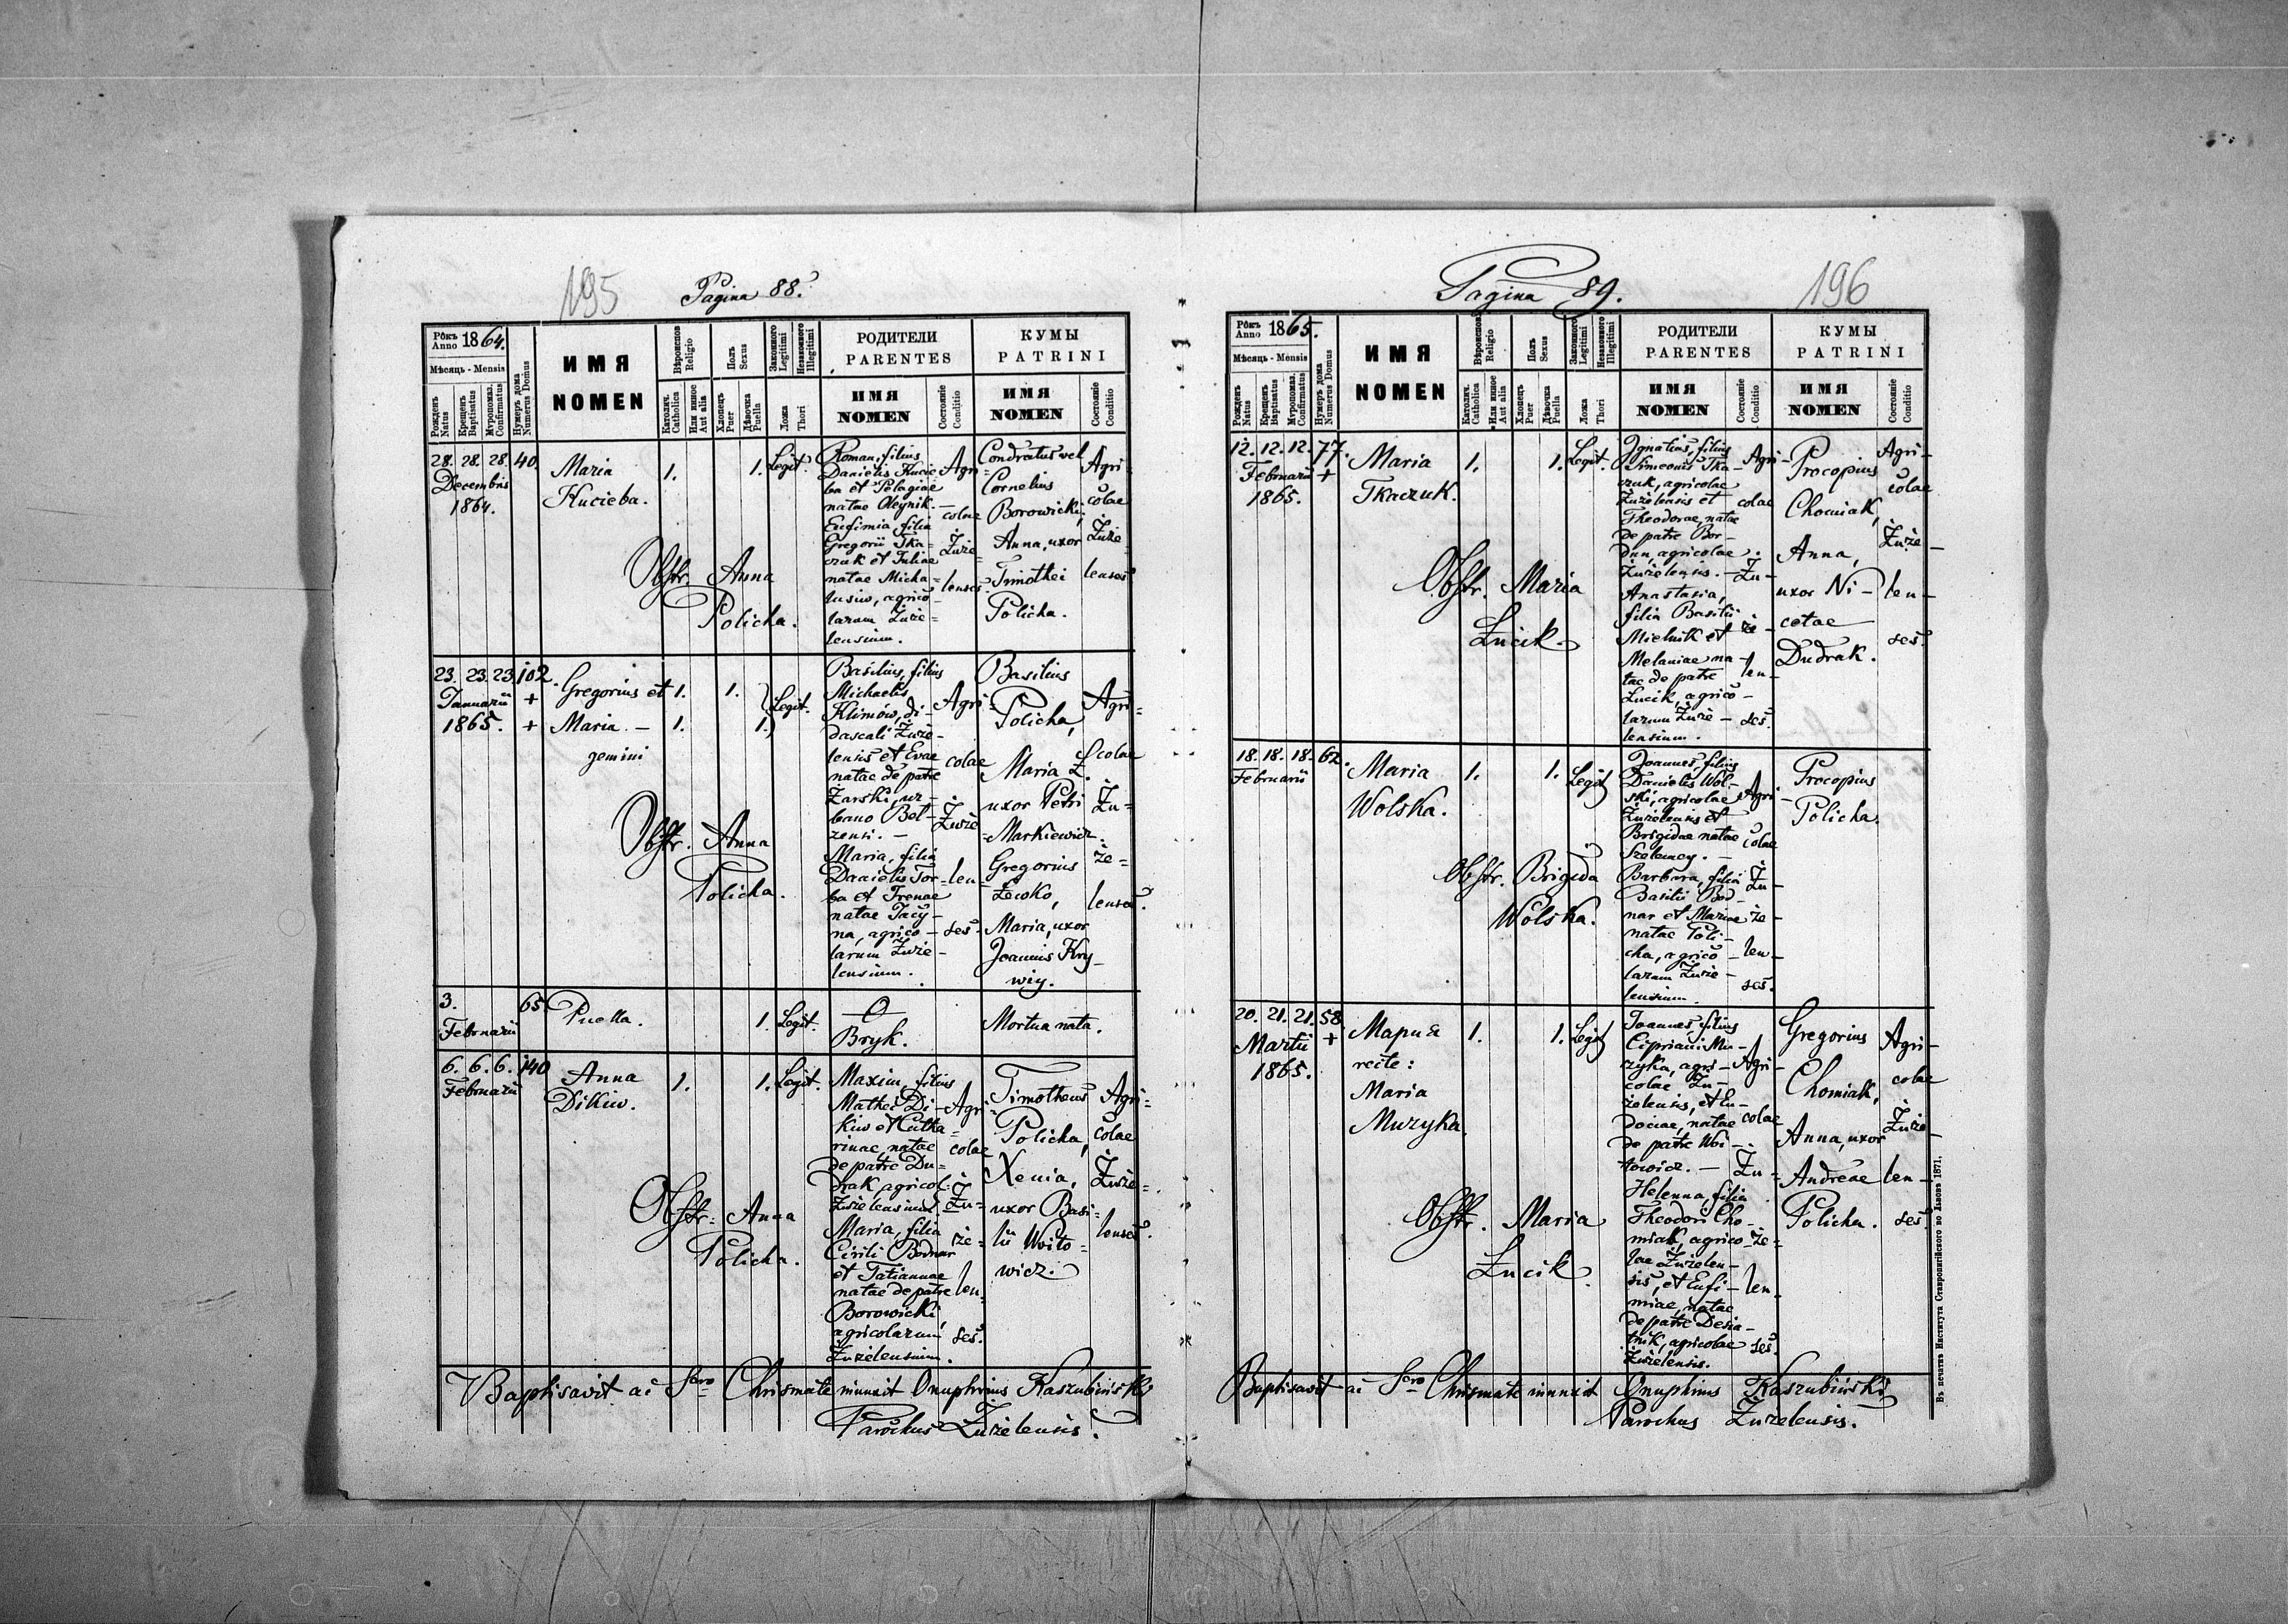 195
Pagina 88.
Рôкъ Anno 1864.
Мѣсяць - Mensis
Рожденъ Natus
Крещенъ Baptisatus
Мѵропомаз. Confirmatus
Нумеръ дома Numerus Domus
ИМЯ
NOMEN
Вѣроиспов Religio
Католич. Catholica
Или иное Aut alia
Полъ Sexus
Хлопецъ Puer
Дѣвочка Puella
Законного Legitimi
Незаконного Illegitimi
Ложа Thori
РОДИТЕЛИ
PARENTES
ИМЯ
NOMEN
Состояніе Conditio
КУМЫ
PATRINI
ИМЯ
NOMEN
Состояніе Conditio
28. 28. 28. 40.
Decembris
1864.
Maria
Kucieba.
1.
1. Legit.
Obstr. Anna
Policha.
Roman, filius
Danielis Kucie
ba et Pelagiae
natae Oleynik. —
Eufimia, filia
Gregorii Tka=
czuk et Juliae
natae Micha=
lusiw, agrico-
larum Żuże=
lensium.
Agri=
colae
Żuże=
lenses.
Condratus vel
Cornelius
Borowicki;
Anna, uxor
Timothei
Policha.
Agri=
colae
Żuże=
lenses
23. 23. 23. 102.
Januarii +
1865. +
Gregorius et
Maria. —
gemini
1. 1.
1. 1.
Legit.
Obstr. Anna
Policha.
Basilius, filius
Michaelis
Klimów, di-
dascali Żuże-
lensis et Evae
natae de patre
Żarski, ur-
bano Bel-
zensi. —
Maria, filia
Danielis Tor=
ba et Irenae
natae Jacy-
na, agrico-
larum Żuże-
lensium.
Agri=
colae
Żuże
len=
ses.
Basilius
Policha,
Maria Z.
uxor Petri
Markiewicz.
Gregorius
Lewko,
Maria, uxor
Joannis Kry-
wiy.
Agri=
colae
Żu=
że=
lenses.
3. 65.
Februarii
Puella.
1. Legit.
O
Bryk.
Mortua nata.
6. 6. 6. 140
Februarii
Anna
Dikiw.
1.
1. Legit.
Obstr. Anna
Policha.
Maxim, filius
Mathei Di-
kiw et Catha=
rinae, natae
de patre Du=
drak, agricol.
Żużelensium
Maria, filia
Cirili Bodnar
et Tatiannae
natae de patre
Borowicki,
agricolarum
Żużelensium.
Agri=
colae
Żu=
że=
len
ses.
Timotheus
Policha,
Xenia,
uxor Basi=
lii Woito=
wicz.
Agri=
colae
Żuże=
lenses.
Baptisavit ac Scro Chrismate inunxit Onuphrius Kaszubiński
Parochus Żużelensis.
196
Pagina 89.
Рôкъ Anno 1865.
Мѣсяць - Mensis
Рожденъ Natus
Крещенъ Baptisatus
Мѵропомаз. Confirmatus
Нумеръ дома Numerus Domus
ИМЯ
NOMEN
Вѣроиспов Religio
Католич. Catholica
Или иное Aut alia
Полъ Sexus
Хлопецъ Puer
Дѣвочка Puella
Законного Legitimi
Незаконного Illegitimi
Ложа Thori
РОДИТЕЛИ
PARENTES
ИМЯ
NOMEN
Состояніе Conditio
КУМЫ
PATRINI
ИМЯ
NOMEN
Состояніе Conditio
12. 12. 12. 77.
Februarii +
1865.
Maria
Tkaczuk.
1.
1. Legit.
Obstr. Maria
Łucik.
Ignatius, filius
Simeonis Tka-
czuk, agricolae
Żużelensis et
Theodorae, natae
de patre Bor-
dun, agricolae
Żużelensis. —
Anastasia,
filia Basilii
Mielnik et
Melaniae na-
tae de patre
Łucik, agrico-
larum Żuże-
lensium.
Agri-
colae
Żu-
że-
len-
ses.
Procopius
Chomiak,
Anna,
uxor Ni-
cetae
Dudrak.
Agri-
colae
Żuże-
len-
ses.
18. 18. 18. 62.
Februarii
Maria
Wolska.
1.
1. Legit
Obstr. Brigida
Wolska.
Joannes, filius
Danielis Wol-
ski, agricolae
Żużelensis et
Brigidae natae
Szelemey. —
Barbara, filia
Basilii Bod-
nar et Mariae
natae Poli-
cha, agrico-
larum Żuże-
lensium.
Agri-
colae
Żu-
że-
len-
ses.
Procopius
Policha.
20. 21. 21. 58
Martii +
1865.
Мария
recte:
Maria
Muzyka.
1.
1. Legit
Obstr. Maria
Łucik.
Joannes, filius
Cipriani Mu-
zyka, agri-
colae Żu-
żelensis, et Eu-
dociae, natae
de patre Woi-
towicz. —
Helenna, filia
Theodori Cho-
miak, agrico-
lae Żużelen-
sis, et Eufi-
miae, natae
de patre Desia-
tnik, agricolae
Żużelensis.
Agri-
colae
Żu=
że=
len-
ses.
Gregorius
Chomiak,
Anna, uxor
Andreae
Policha.
Agri-
colae
Żuże-
len-
ses.
Baptisavit ac Scro Chrismate inunxit Onuphrius Kaszubiński
Parochus Żużelensis.
Въ печатнѣ Института Ставропигійского во Львовѣ 1871.